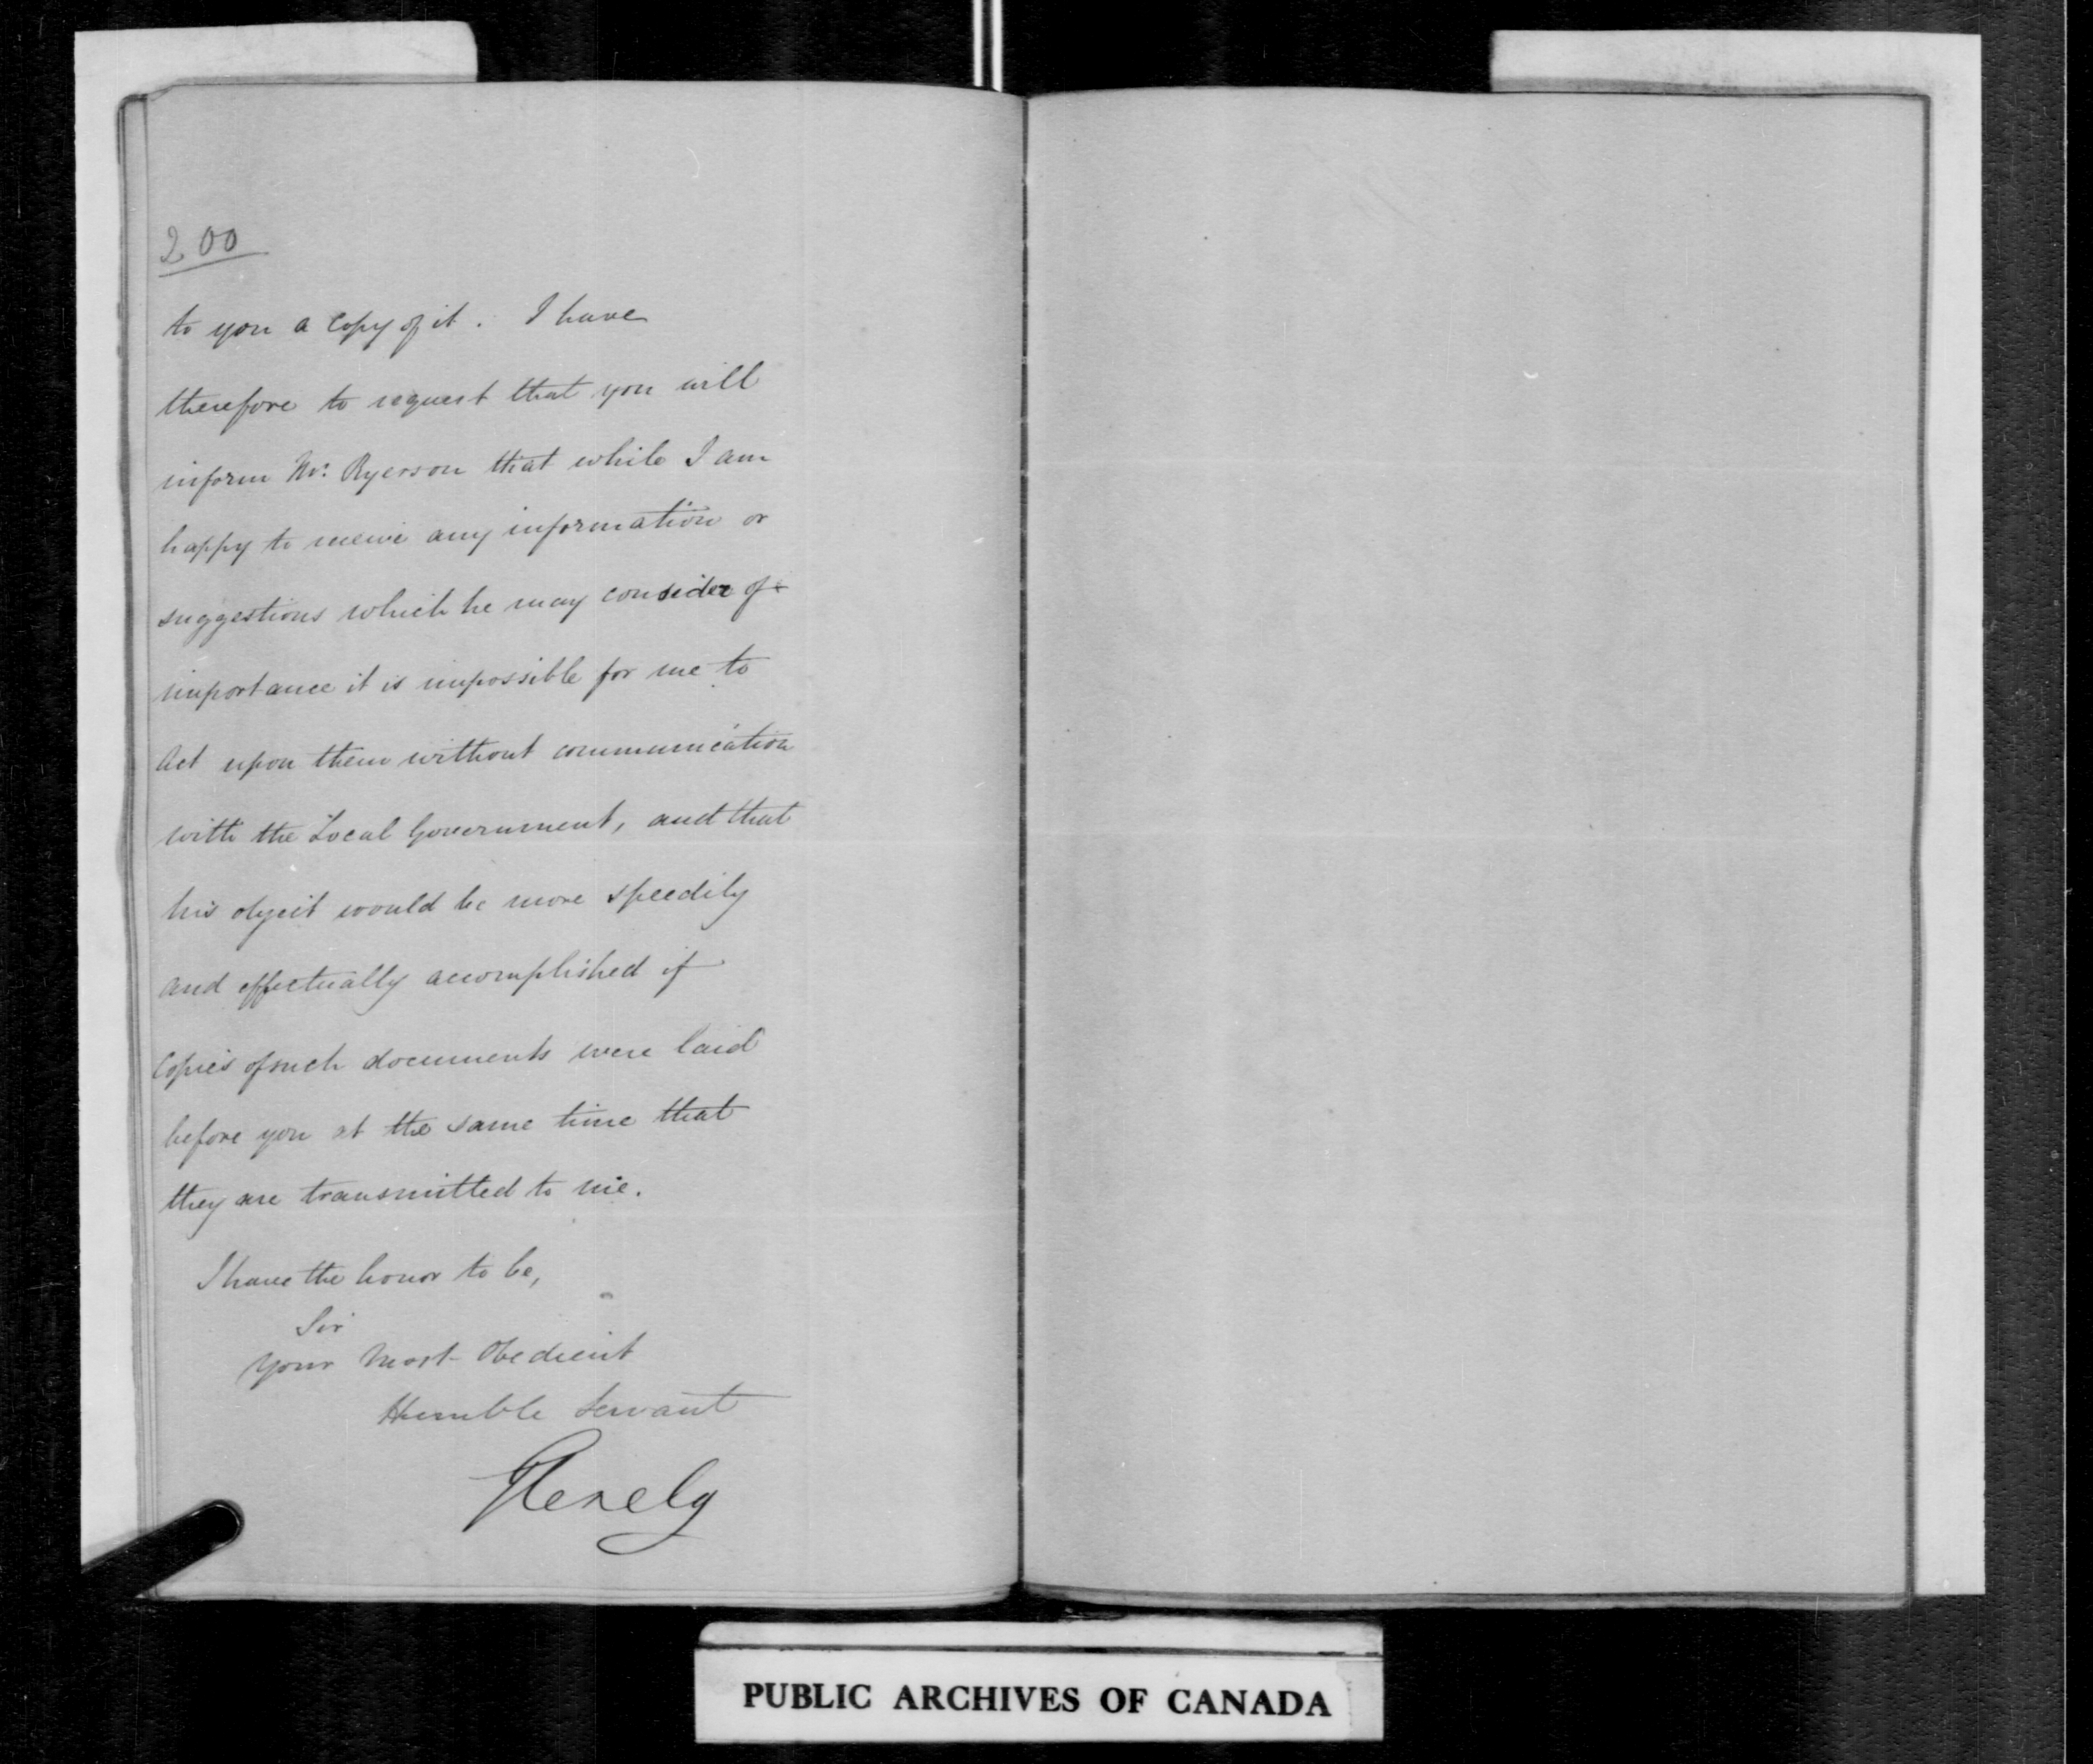 200
to you a Copy of it. I have
therefore to request that you will
inform Mr. Ryerson that while I am
happy to receive any information or
suggestions which he may consider of
importance it is impossible for me to
Act upon them without communication
with the Local Government, and that
his object would be more speedily
and effectually accomplished if
Copies of such documents were laid
before you at the same time that
they are transmitted to me.
I have the honor to be,
Sir
Your Most Obedient
Humble Servant
Glenelg
PUBLIC ARCHIVES OF CANADA